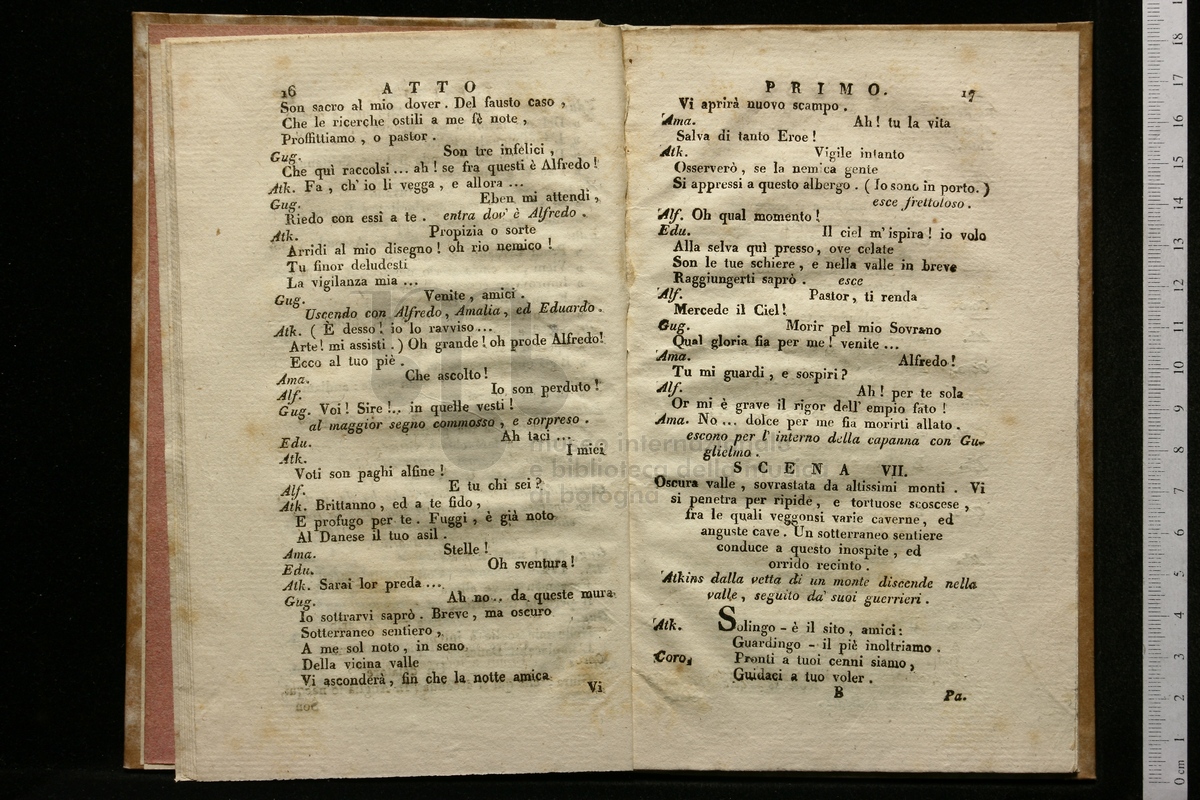 16 ATTO
Son sacro al mio dover. Del fausto caso,
Che le ricerche ostili a me fè note,
Proffittiamo, o pastor.
Gug. Son tre infelici,
Che quì raccolsi... ah! se fra questi è Alfredo!
Atk. Fa, ch' io li vegga, e allora ...
Gug. Eben mi attendi,
Riedo con essi a te. entra dov' è Alfredo.
Atk. Propizia o sorte
Arridi al mio disegno! oh rio nemico!
Tu finor deludesti
La vigilanza mia ...
Gug. Venite, amici.
Uscendo con Alfredo, Amalia, ed Eduardo.
Atk. ( È desso! io lo ravviso...
Arte! mi assisti.) Oh grande! oh prode Alfredo!
Ecco al tuo piè.
Ama. Che ascolto!
Alf. Io son perduto!
Gug. Voi! Sire!.. in quelle vesti!
al maggior segno commosso, e sorpreso.
Edu. Ah taci ...
Atk. I miei
Voti son paghi alfine!
Alf. E tu chi sei?
Atk. Brittanno, ed a te fido,
E profugo per te. Fuggi, è già noto
Al Danese il tuo asil.
Ama. Stelle!
Edu. Oh sventura!
Atk. Sarai lor preda ...
Gug. Ah no.. da queste mura
Io sottrarvi saprò. Breve, ma oscuro
Sotterraneo sentiero,
A me sol noto, in seno
Della vicina valle
Vi asconderà, fin che la notte amica
Vi
PRIMO. 17
Vi aprirà nuovo scampo.
Ama. Ah! tu la vita
Salva di tanto Eroe!
Atk. Vigile intanto
Osserverò, se la nemica gente
Si appressi a questo albergo. ( Io sono in porto.)
esce frettoloso.
Alf. Oh qual momento!
Edu. Il ciel m' ispira! io volo
Alla selva quì presso, ove celate
Son le tue schiere, e nella valle in breve
Raggiungerti saprò. esce
Alf. Pastor, ti renda
Mercede il Ciel!
Gug. Morir pel mio Sovrano
Qual gloria fia per me! venite ...
Ama. Alfredo!
Tu mi guardi, e sospiri?
Alf. Ah! per te sola
Or mi è grave il rigor dell' empio fato!
Ama. No ... dolce per me fia morirti allato.
escono per l' interno della capanna con Gu-
glielmo.
SCENA VII.
Oscura valle, sovrastata da altissimi monti. Vi
si penetra per ripide, e tortuose scoscese,
fra le quali veggonsi varie caverne, ed
anguste cave. Un sotterraneo sentiere
conduce a questo inospite, ed
orrido recinto.
Atkins dalla vetta di un monte discende nella
valle, seguito da' suoi guerrieri.
Atk. Solingo - è il sito, amici:
Guardingo - il piè inoltriamo.
Coro. Pronti a tuoi cenni siamo,
Guidaci a tuo voler.
B Pa.
museo internazionale
e biblioteca della musica
di bologna
0 cm 1 2 3 4 5 6 7 8 9 10 11 12 13 14 15 16 17 18